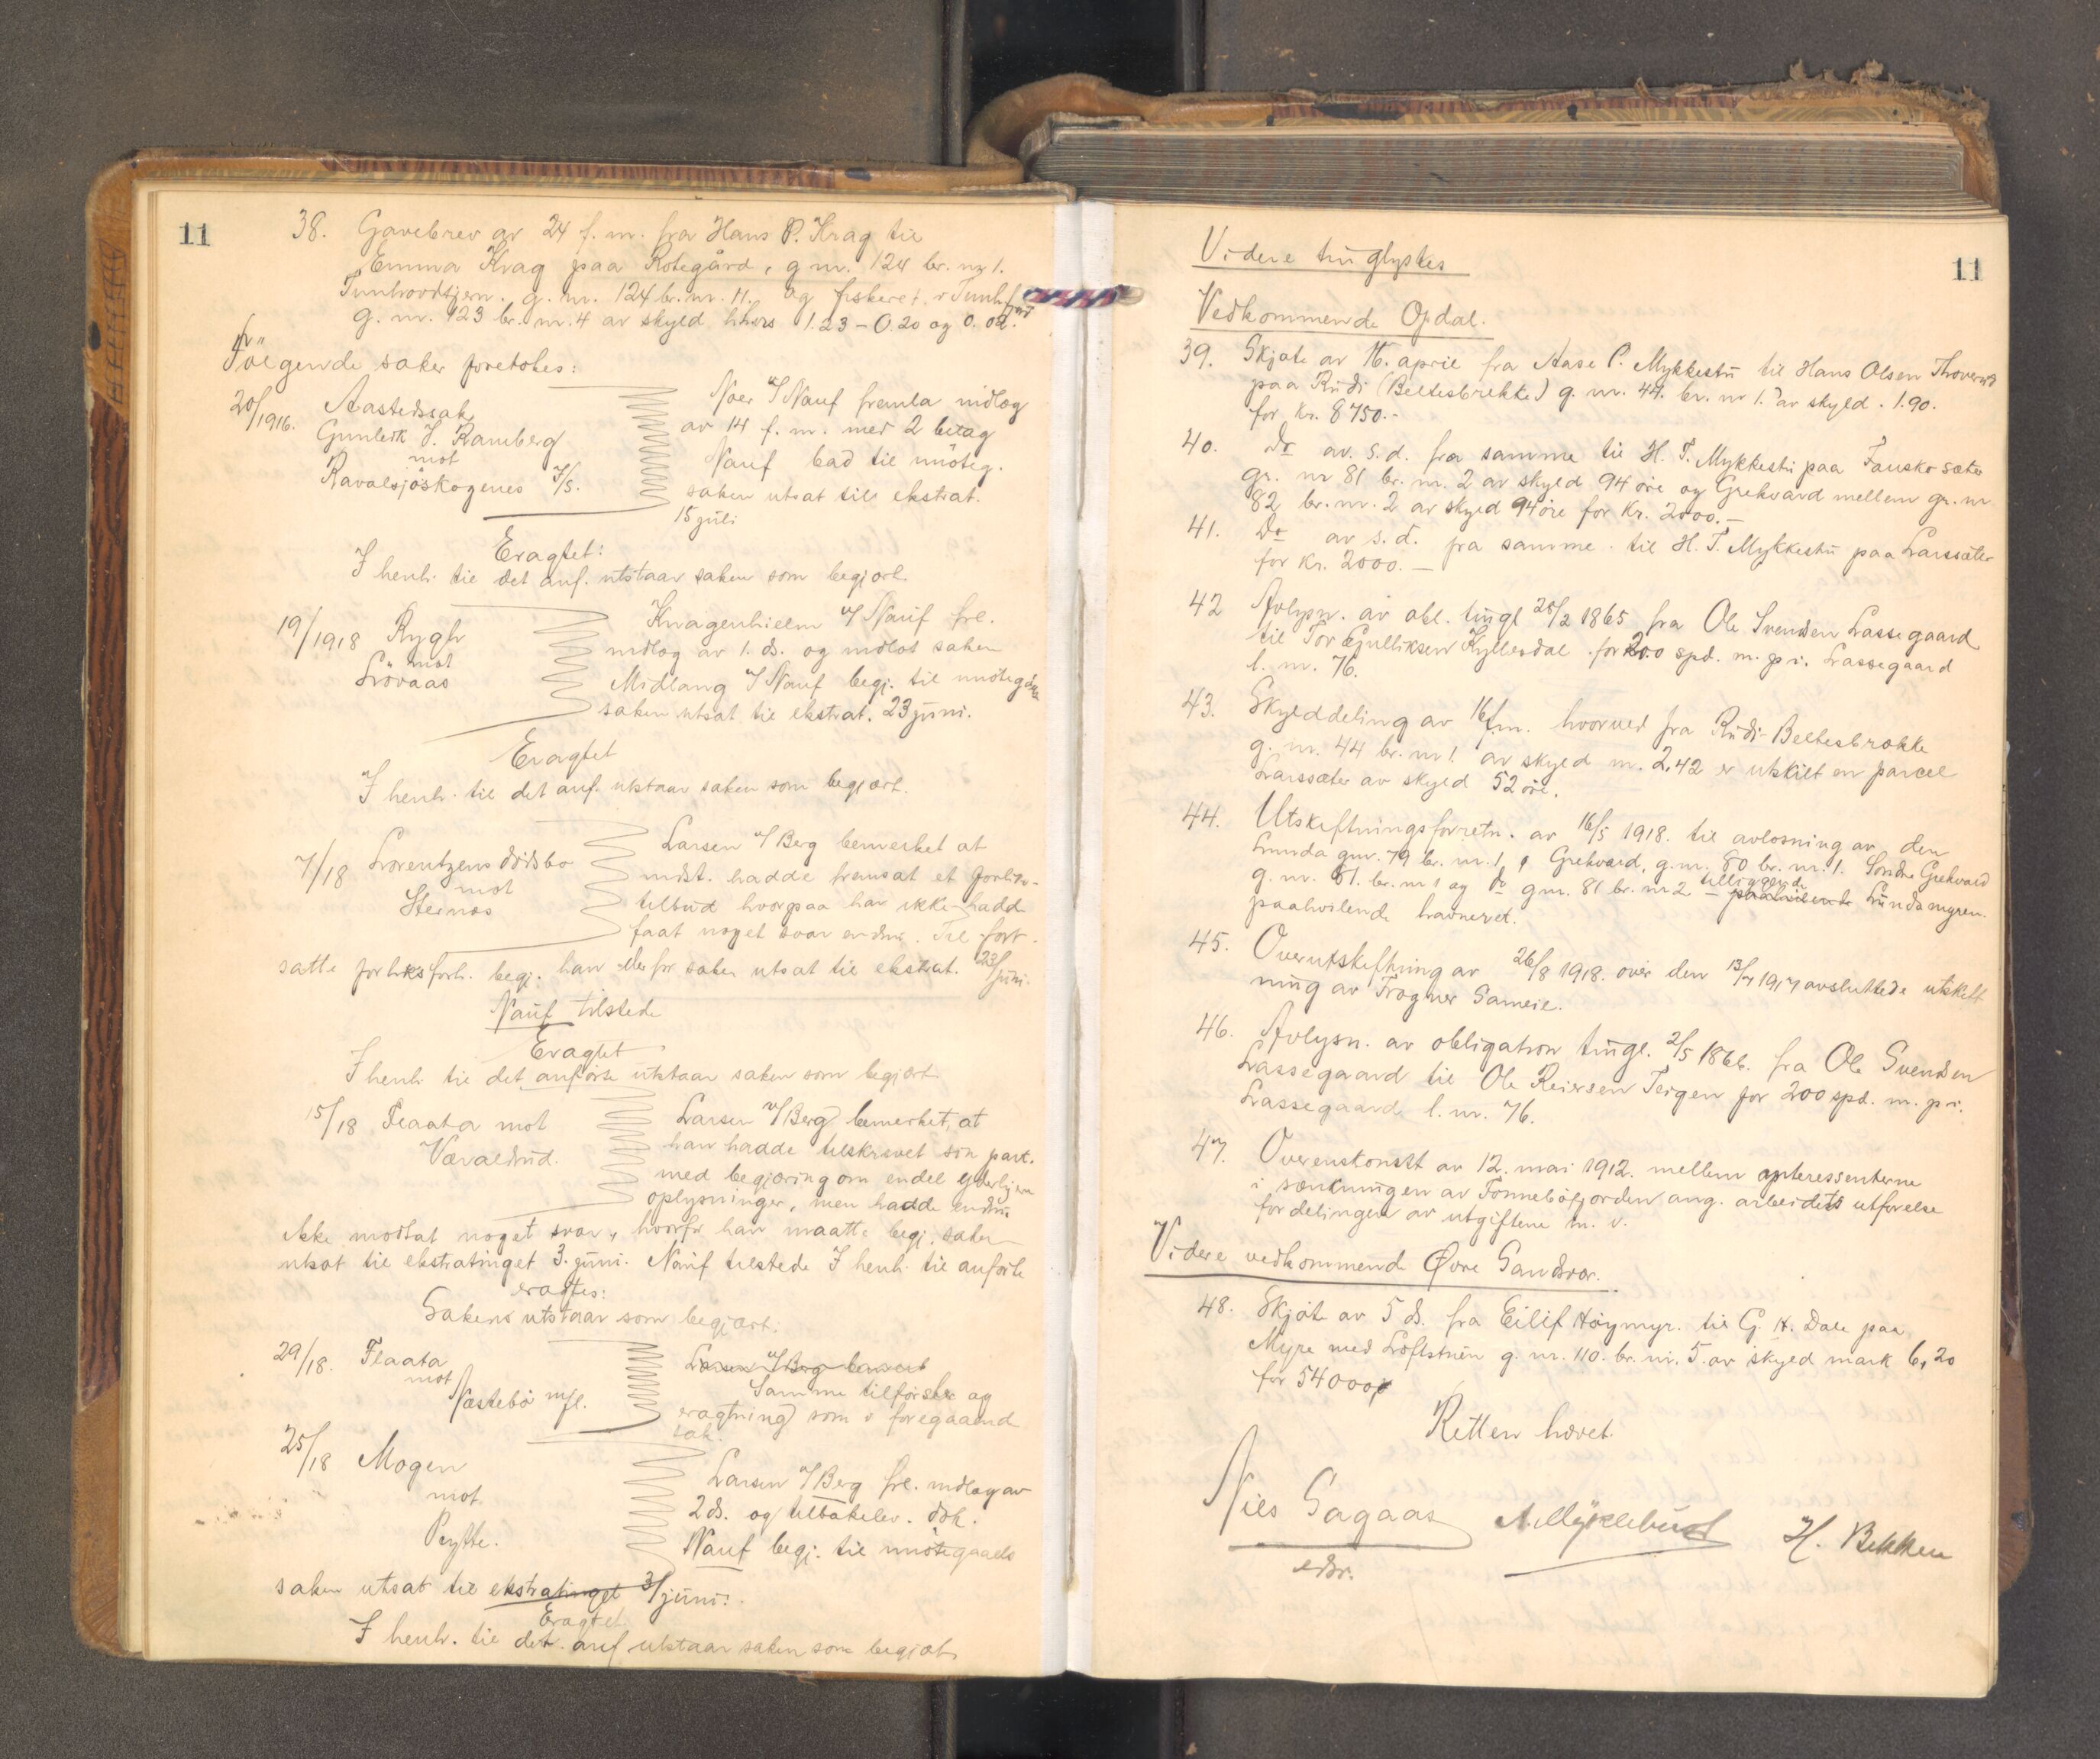 11
38. Gavebrev av 24 f. m. fra Hans P. Krag til
Emma Krag paa Rotegård, g nr. 124 br. nr 1.
Tunhovdtjern. g. nr. 124 br. nr. 11. og fiskeret i Tunh.fjord
g. nr. 123 br. nr. 4 av skyld hhvs 1.23 – 0.20 og 0.02.
Følgende saker foretokes:
20/1916. Aastedssak
Gunleik J. Ramberg
mot
Ravalsjöskogenes A/S.
Noer v/ Nauf fremla indlæg
av 14 f. m. med 2 bilag
Nauf bad til imøteg.
saken utsat til ekstrat.
15 juli
Eragtet:
I henh. til det anf. utstaar saken som begjært.
19/1918 Rygh
mot
Lövaas
Knagenhielm v/ Nauf frl.
indlæg av 1. ds. og indlot saken
Midlang v/ Nauf begj. til imøtegåelse
saken utsat til ekstrat. 23 juni.
Eragtet
I henh. til det anf. utstaar saken som begjært.
7/18 Lorentzens dödsbo
mot
Stenos
Larsen v/ Berg bemerket at
indst. hadde fremsat et forliks-
tilbud hvorpaa han ikke hadde
faat noget svar endnu. Til fort-
satte forliksforh. begj. han derfor saken utsat til ekstrat. 23/juni.
Nauf tilstede
Eragtet
I henh. til det anførte utstaar saken som begjært
15/18 Flaata mot
Væraldrud.
Larsen v/ Berg bemerket, at
han hadde tilskrevet sin part.
med begjæring om endel yderligere
oplysninger, men hadde endnu
ikke mottat noget svar, hvorfor han maatte begj. saken
utsat til ekstratinget 3. juni. Nauf tilstede I henh. til anførte
eragtes:
Sakens utstaar som begjært.
29/18. Flaata
mot
Næstebö mfl.
Larsen v/ Berg bemerket
Samme tilførsler og
eragtning som i foregaaende
sak.
25/18 Mogen
mot
Peytte.
Larsen v/ Berg frl. indlæg av
2 ds. og tilbakelev. dok.
Nauf begj. til imøtegaaels
saken utsat til ekstratinget 3/juni.
Eragtet
I henh. til det anf utstaar saken som begjært
11
Videre tinglystes
Vedkommende Opdal.
39. Skjøte av 16. april fra Aase P. Mykkestu til Hans Olsen
paa Rudi (Beltesbrekke) g. nr. 44. br. nr 1. av skyld. 1.90.
for Kr. 8750.-
40. Do av. s. d. fra samme til H. T. Mykkestu paa Fausko sæter
gr. nr 81 br. nr. 2 av skyld 94 öre og Grekvard mellem gr. nr
82 br. nr. 2 av skyld 94 öre for Kr. 2000.–
41. Do av s. d. fra samme til H. T. Mykkestu paa Larssæter
for Kr. 2000.–
42 Avlysn. av obl. tingl 25/2 1865 fra Ole Svendsen Lassegaard
til Tor Gulliksen Kyllesdal for 200 spd. m. p i. Lassegaard
l. nr. 76.
43. Skylddeling av 16/f.m. hvorved fra Rudi-Beltesbrekke
g. nr. 44 br. nr 1. av skyld m. 2,42 er utskilt en parcel
Larssæter av skyld 52 öre.
44. Utskiftningsforretn. av 16/5 1918. til avløsning av den
Lunda gnr. 79 br. nr. 1, Grekvard, g. nr. 80 br. nr. 1. Søndre Grekvard
g. nr. 81. br. nr 1 og do gnr. 81 br. nr 2 – paahvilende tilliggende Lundamyren
paahvilende havneret.
45. Overutskiftning av 26/8 1918. over den 13/7 1917 avsluttede utskift
ning av Frogner Sameie.
46. Avlysn. av obligation tingl. 2/5 1866. fra Ole Svendsen
Lassegaard til Ole Reiersen Teigen for 200 spd. m. p i.
Lassegaard l. nr. 76.
47. Overenskomst av 12. mai 1912. mellem interessenterne
i sænkningen av Tonnebøfjorden ang. arbeidets utførelse
fordelingen av utgiftene m. v.
Videre vedkommende Øvre Sandsvær.
48. Skjøte av 5 ds. fra Eilif Höymyr. til G. H. Dale paa
Myre med Loftstuen g. nr. 110. br. nr. 5. av skyld mark 6,20
for 54000
Retten hævet.
Niels Sagaas
edsv.
A. Myklebust
H. Bekken